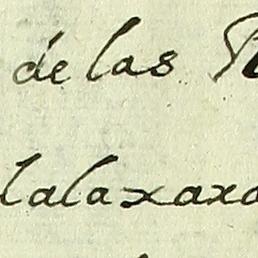 de las
lalaxaxa